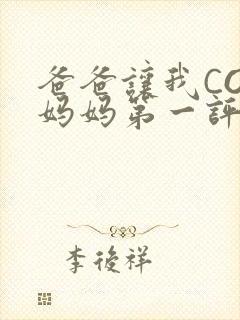 爸爸讓我CO
妈妈第一評
李後祥